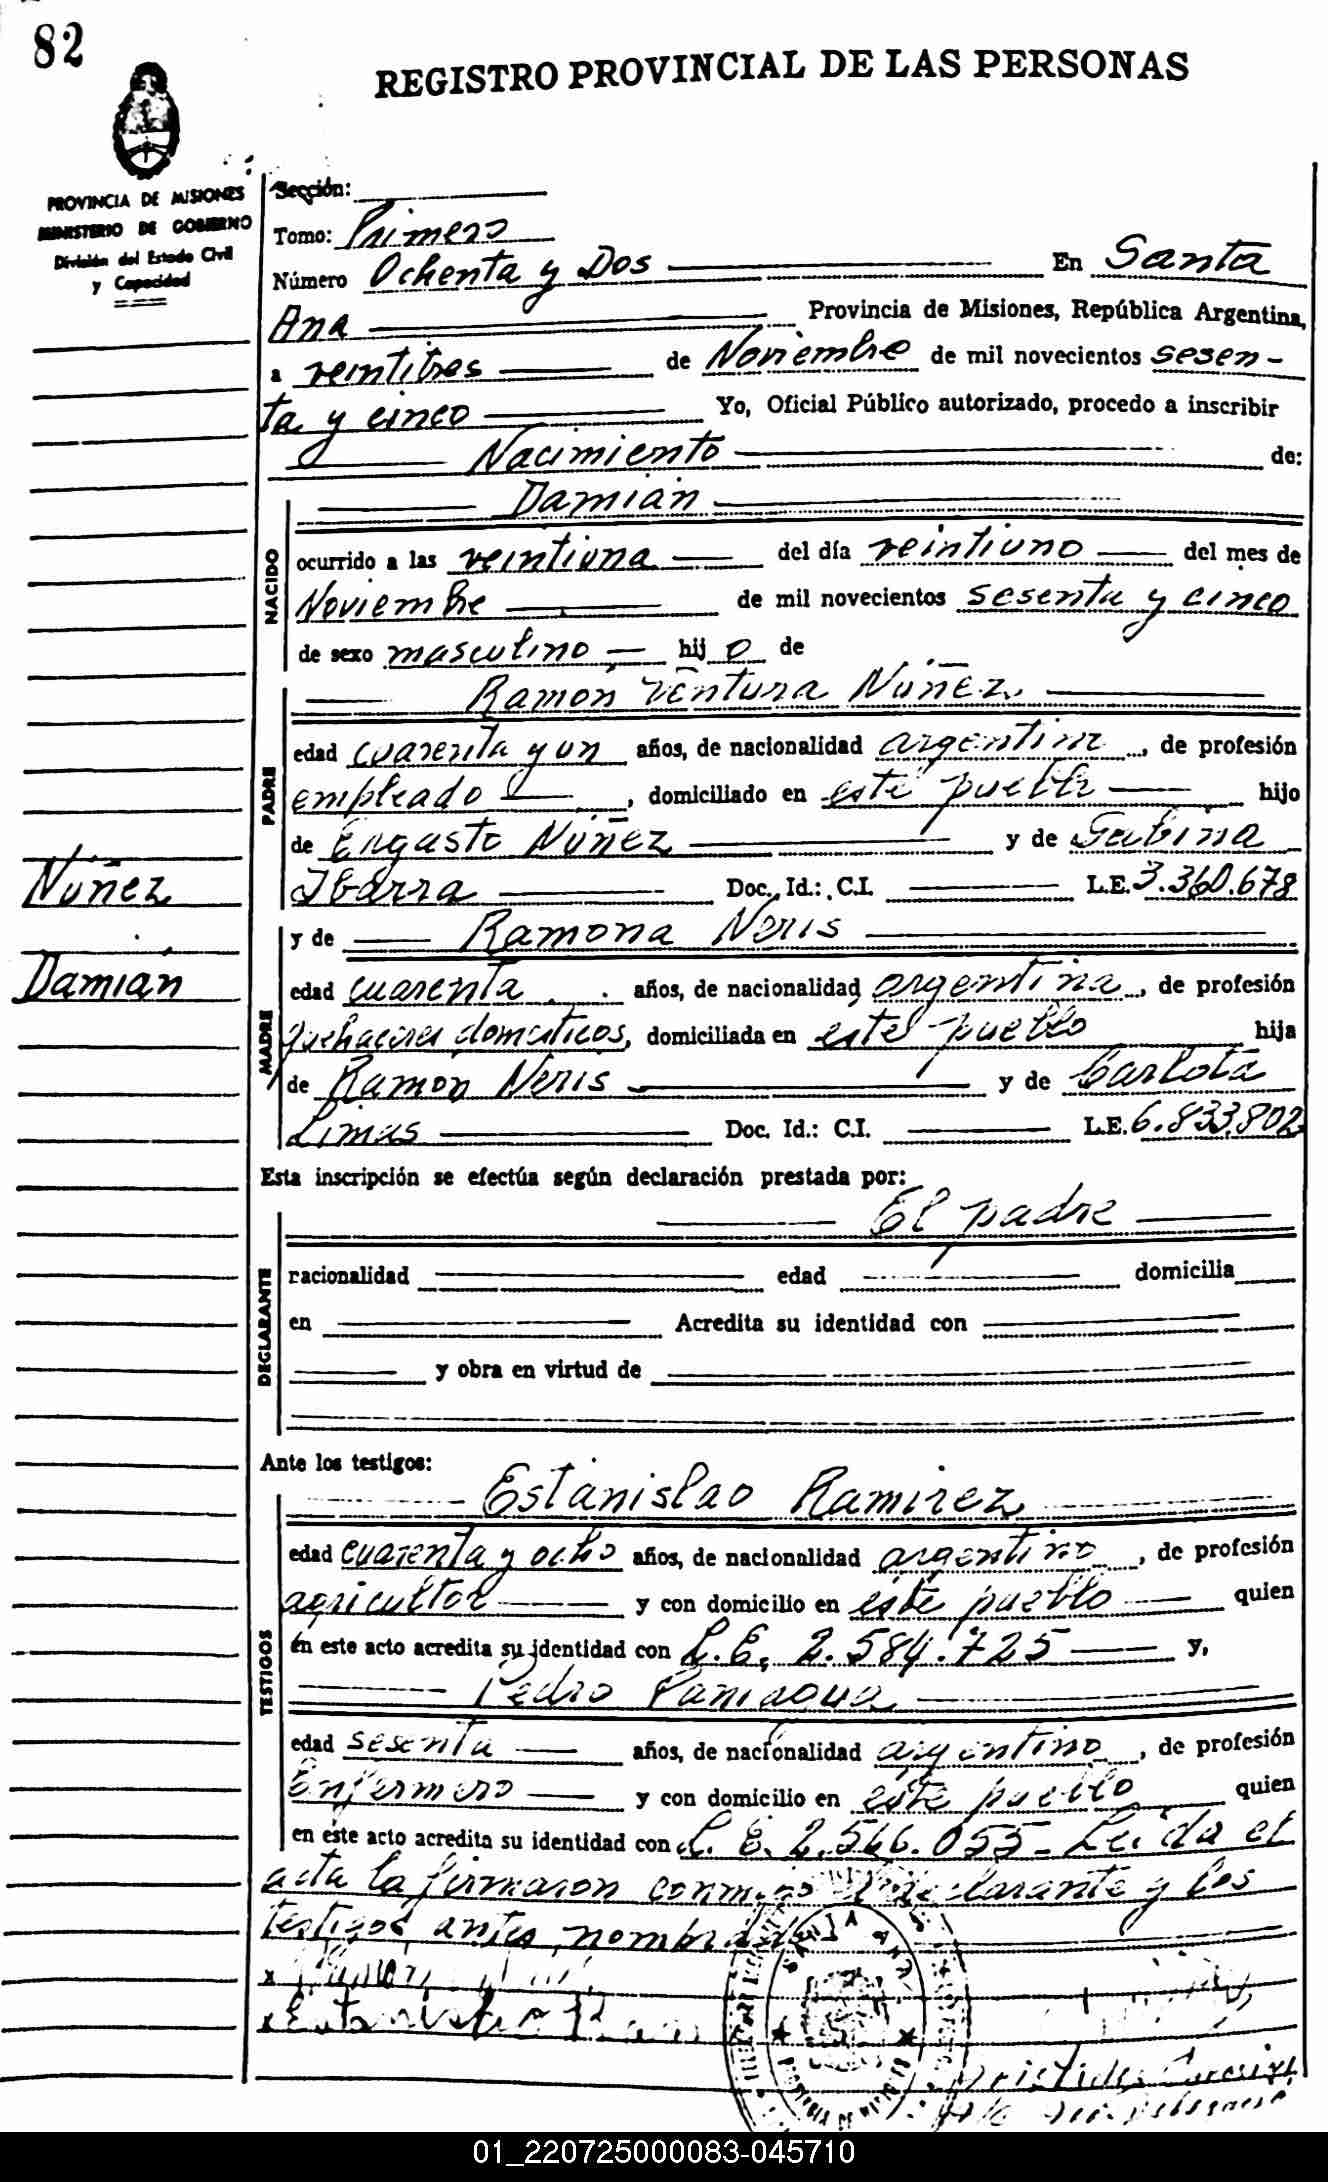 82
REGISTRO PROVINCIAL DE LAS PERSONAS
PROVINCIA DE MISIONES
MINISTERIO DE GOBIERNO
División del Estado Civil
y Capacidad
Sección:
Tomo: Primero
Número Ochenta y Dos En Santa
Ana Provincia de Misiones, República Argentina,
a veintitres de Noviembre de mil novecientos sesen-
ta y cinco Yo, Oficial Público autorizado, procedo a inscribir
Nacimiento de:
Damián
NACIDO
ocurrido a las veintiuna del día veintiuno del mes de
Noviembre de mil novecientos sesenta y cinco
de sexo masculino hij o de
Ramón Ventura Núñez
PADRE
edad cuarenta y un años, de nacionalidad argentino, de profesión
empleado, domiciliado en este pueblo hijo
de Ergasto Núñez y de Gabina
Ibarra Doc. Id.: C.I. L.E. 3.360.678
Núñez
Damián
MADRE
y de Ramona Neris
edad cuarenta años, de nacionalidad argentina, de profesión
quehaceres domesticos, domiciliada en este pueblo hija
de Ramón Neris y de Carlota
Limas Doc. Id.: C.I. L.E. 6.833.802
Esta inscripción se efectúa según declaración prestada por:
El padre
DECLARANTE
racionalidad edad domicilia
en Acredita su identidad con
y obra en virtud de
Ante los testigos:
Estanislao Ramirez
TESTIGOS
edad cuarenta y ocho años, de nacionalidad argentino, de profesión
agricultor y con domicilio en este pueblo quien
en este acto acredita su identidad con L.E. 2.584.725 y,
Pedro Paniagua
edad sesenta años, de nacionalidad argentino, de profesión
Enfermero y con domicilio en este pueblo quien
en este acto acredita su identidad con L.E. 2.566.055- Leida el
acta la firmaron conmigo el declarante y los
testigos antes nombrados
x
x Estanislao Ram
SANTA ANA
PROVINCIA DE MISIONES
01_220725000083-045710